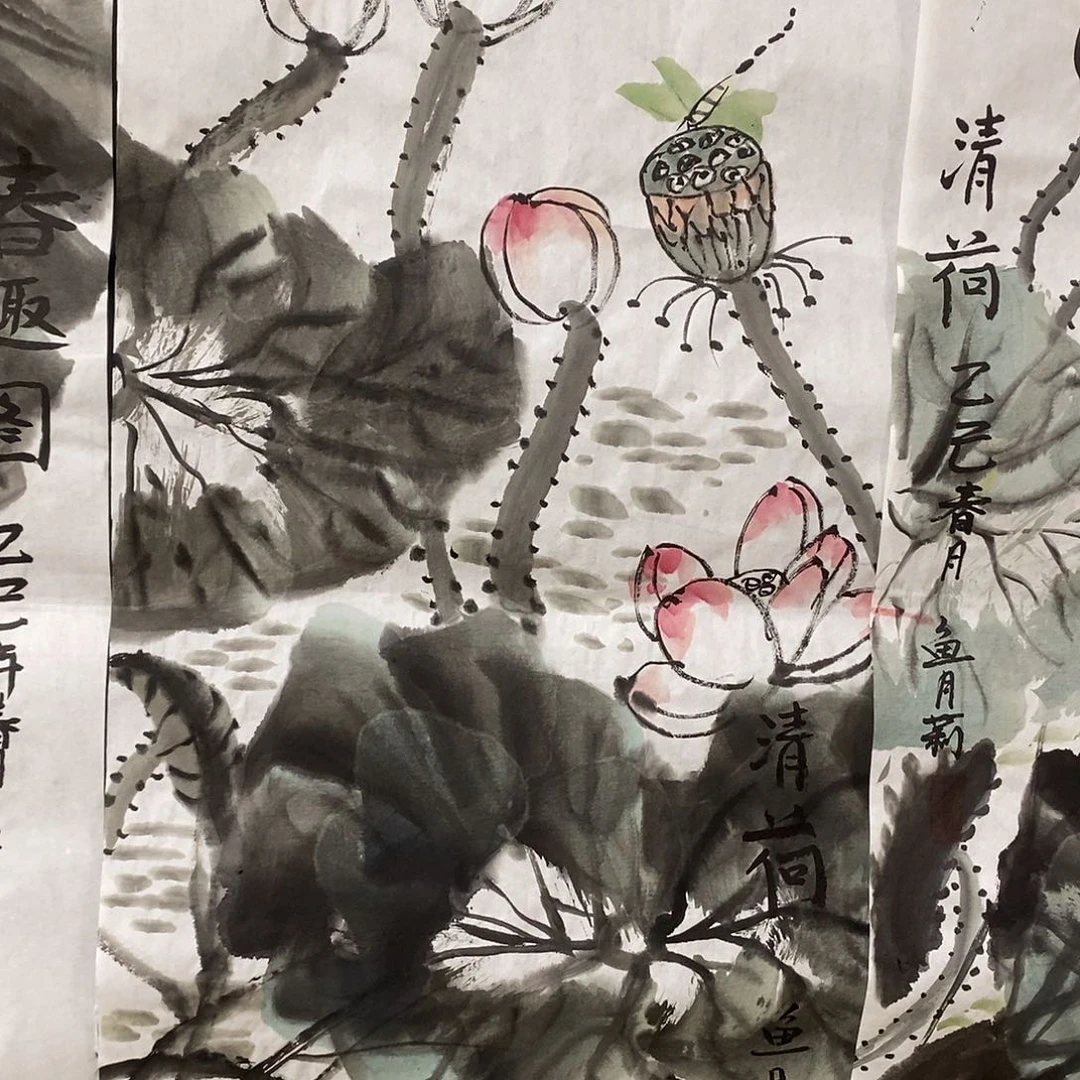 清荷 乙巳春月 鱼月莉
清荷 鱼月
春趣图 乙巳年